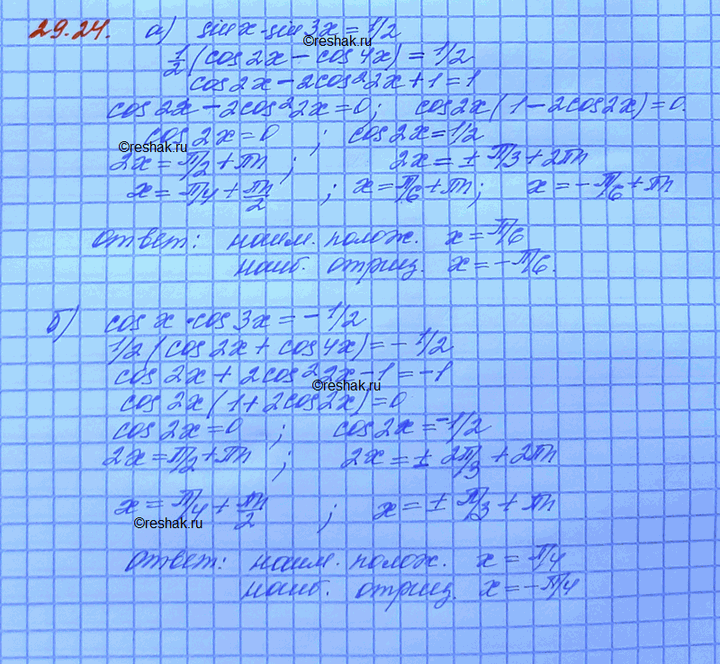 29.24. а) sin x · sin 3x = 1/2
©reshak.ru
1/2 (cos 2x - cos 4x) = 1/2
cos 2x - 2cos² 2x + 1 = 1
cos 2x - 2cos² 2x = 0; cos 2x (1 - 2cos 2x) = 0.
cos 2x = 0 ; cos 2x = 1/2
©reshak.ru
2x = π/2 + πn ; 2x = ± π/3 + 2πn
x = π/4 + πn/2 ; x = π/6 + πn; x = -π/6 + πn
ответ: наим. полож. x = π/6
наиб. отриц. x = -π/6.
б) cos x · cos 3x = -1/2
1/2 (cos 2x + cos 4x) = -1/2
cos 2x + 2cos² 2x - 1 = -1
©reshak.ru
cos 2x (1 + 2cos 2x) = 0
cos 2x = 0 ; cos 2x = -1/2
2x = π/2 + πn ; 2x = ± 2π/3 + 2πn
x = π/4 + πn/2 ; x = ± π/3 + πn
©reshak.ru
ответ: наим. полож. x = π/4
наиб. отриц. x = -π/4